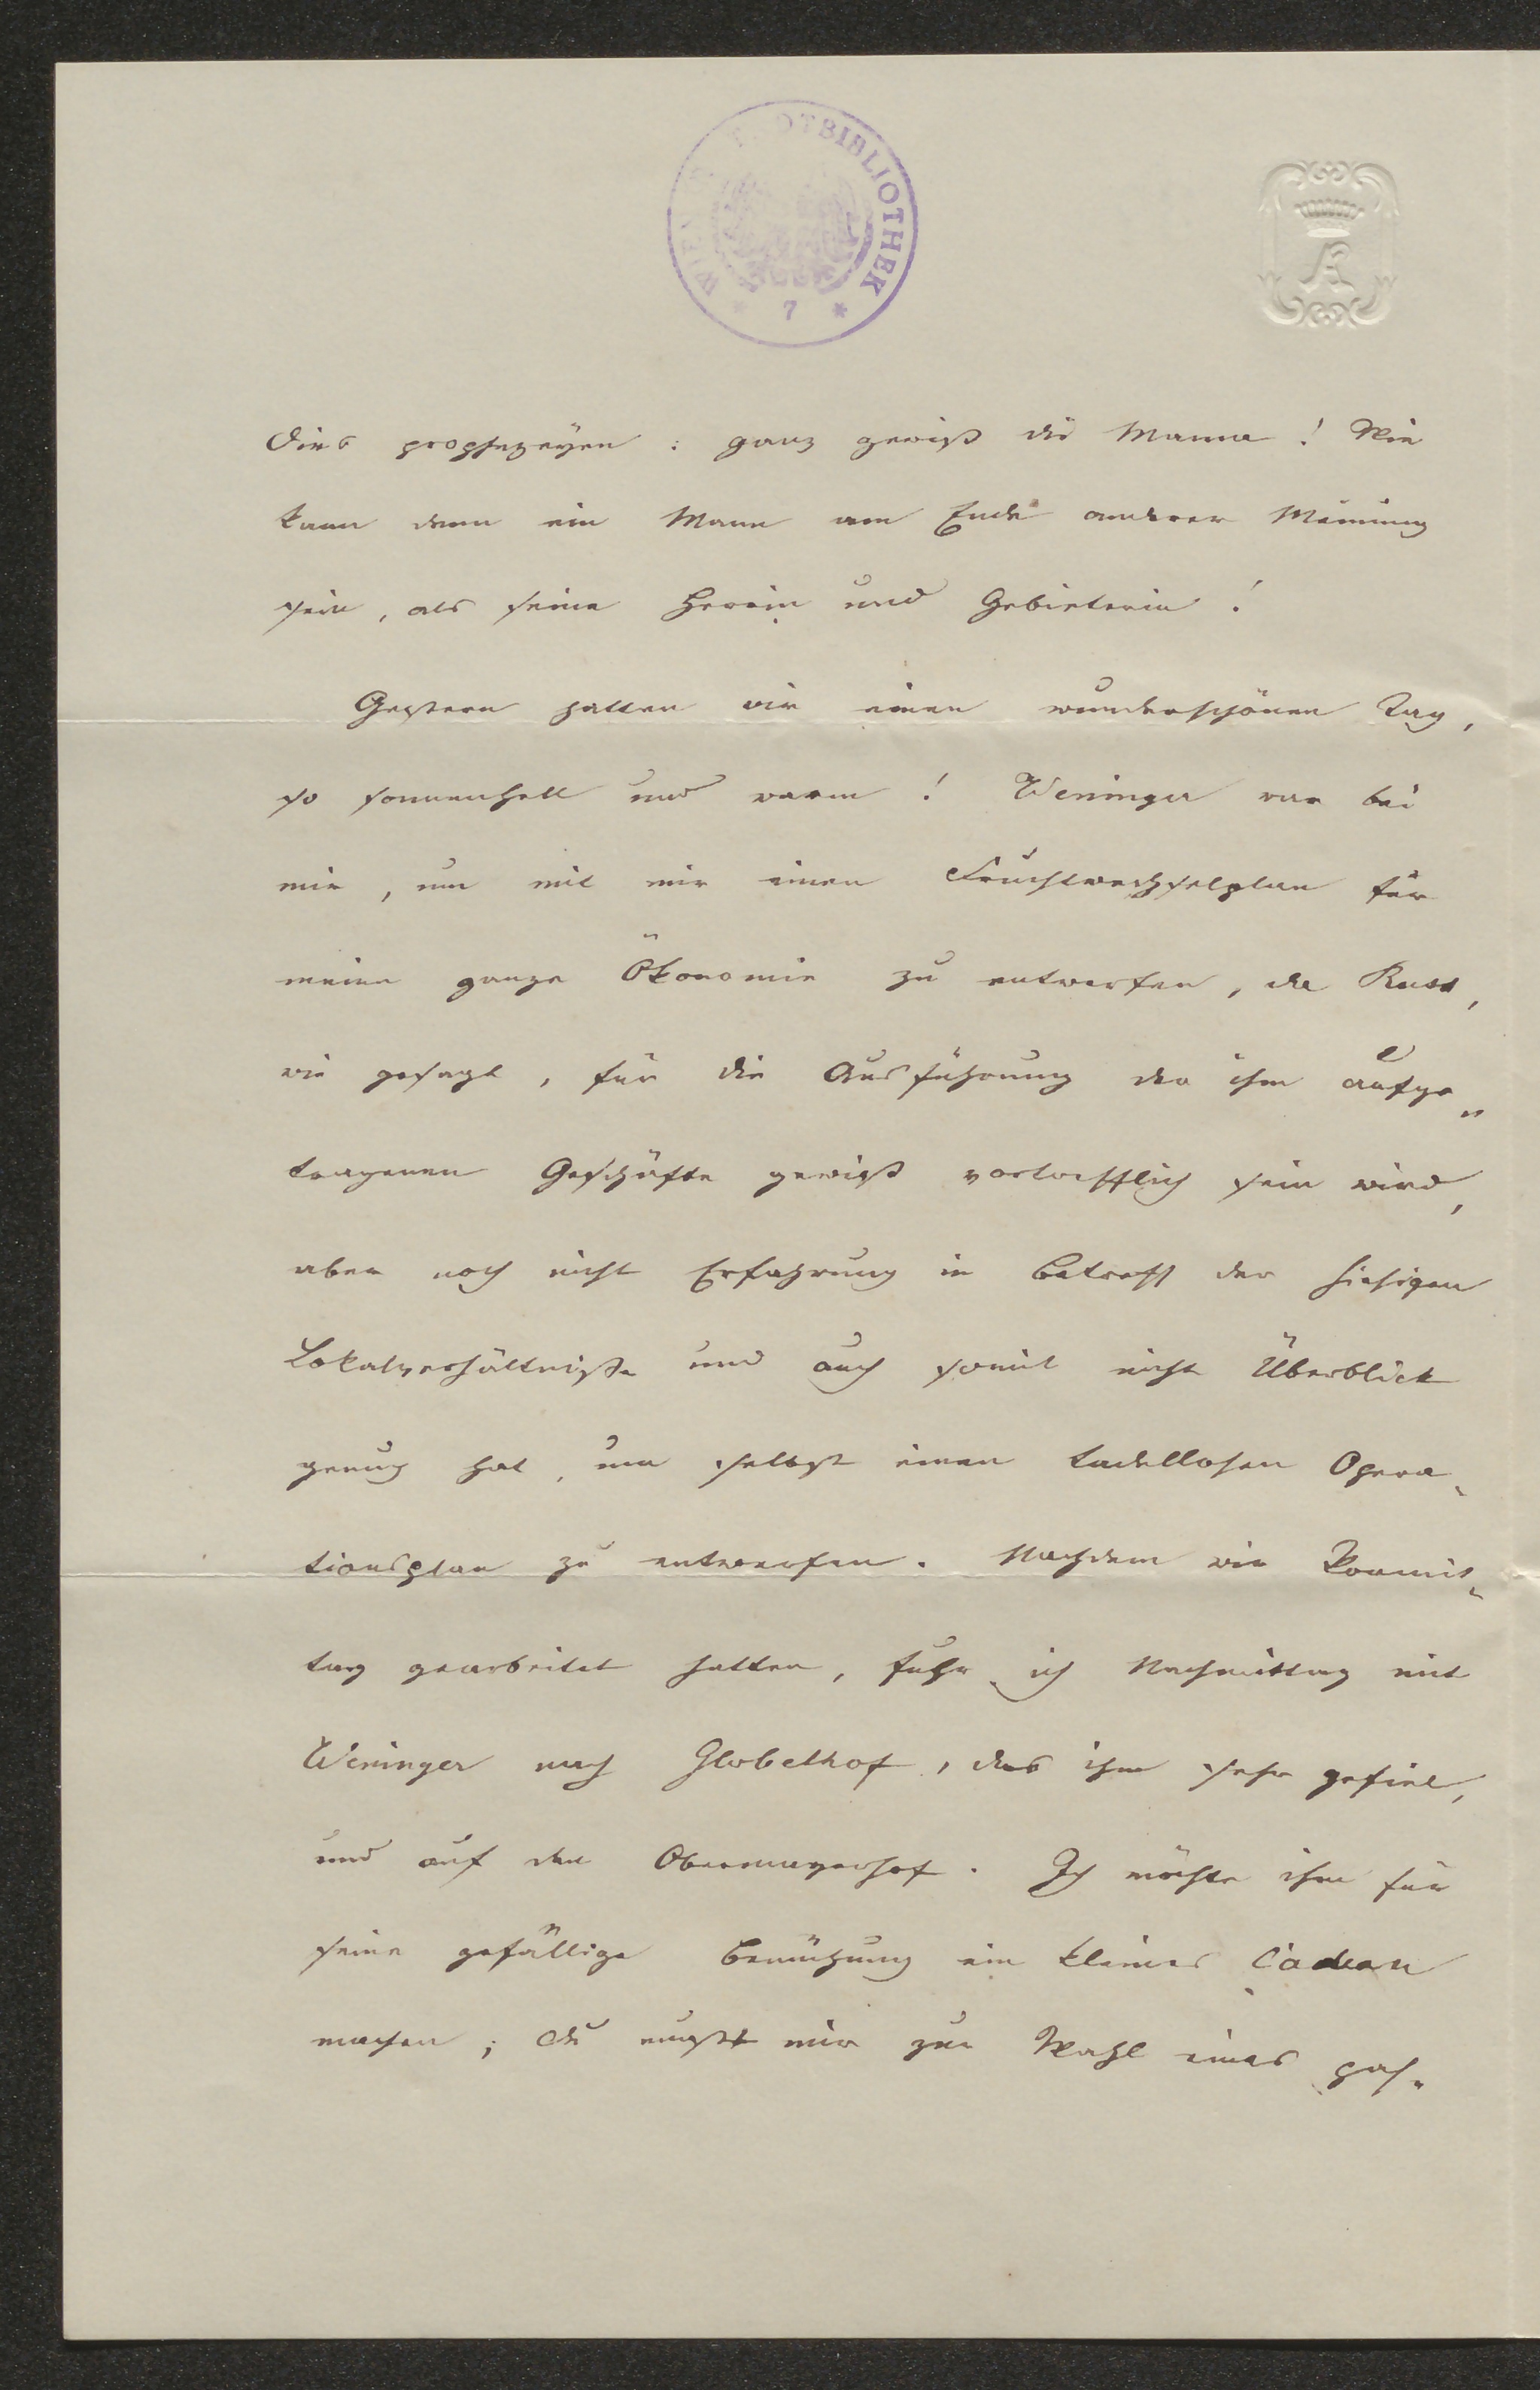 WIENER STADTBIBLIOTHEK
* 7 *
A
Dies prophezeyen: ganz gewiß die Mama! Wie
kann denn ein Mann am Ende anderer Meinung
sein, als seine Herrin und Gebieterin!
Gestern hatten wir einen wunderschönen Tag,
so sonnenhell und warm! Weninger war bei
mir, um mit mir einen Fruchtwechselplan für
meine ganze Ökonomie zu entwerfen, da Russ,
wie gesagt, für die Ausführung der ihm aufge„
tragenen Geschäfte gewiß vortrefflich sein wird,
aber noch nicht Erfahrung in Betreff der hiesigen
Lokalverhältniße und auch somit nicht Überblick
genug hat, um selbst einen tadellosen Opera„
tionsplan zu entwerfen. Nachdem wir Vormit„
tag gearbeitet hatten, fuhr ich Nachmittag mit
Weninger nach Globelhof, das ihm sehr gefiel,
und auf den Obermayerhof. Ich möchte ihm für
seine gefällige Bemühung ein kleines Cadeau
machen; Du mußt mir zur Wahl eines pas„